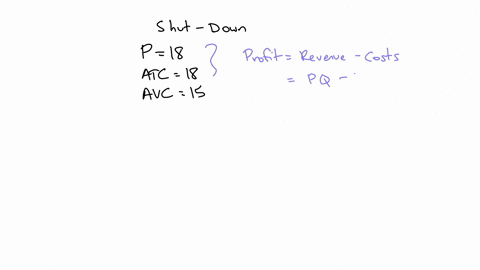 Shut-Down
P = 18
ATC = 18
AVC = 15
Profit = Revenue - Costs
= PQ -